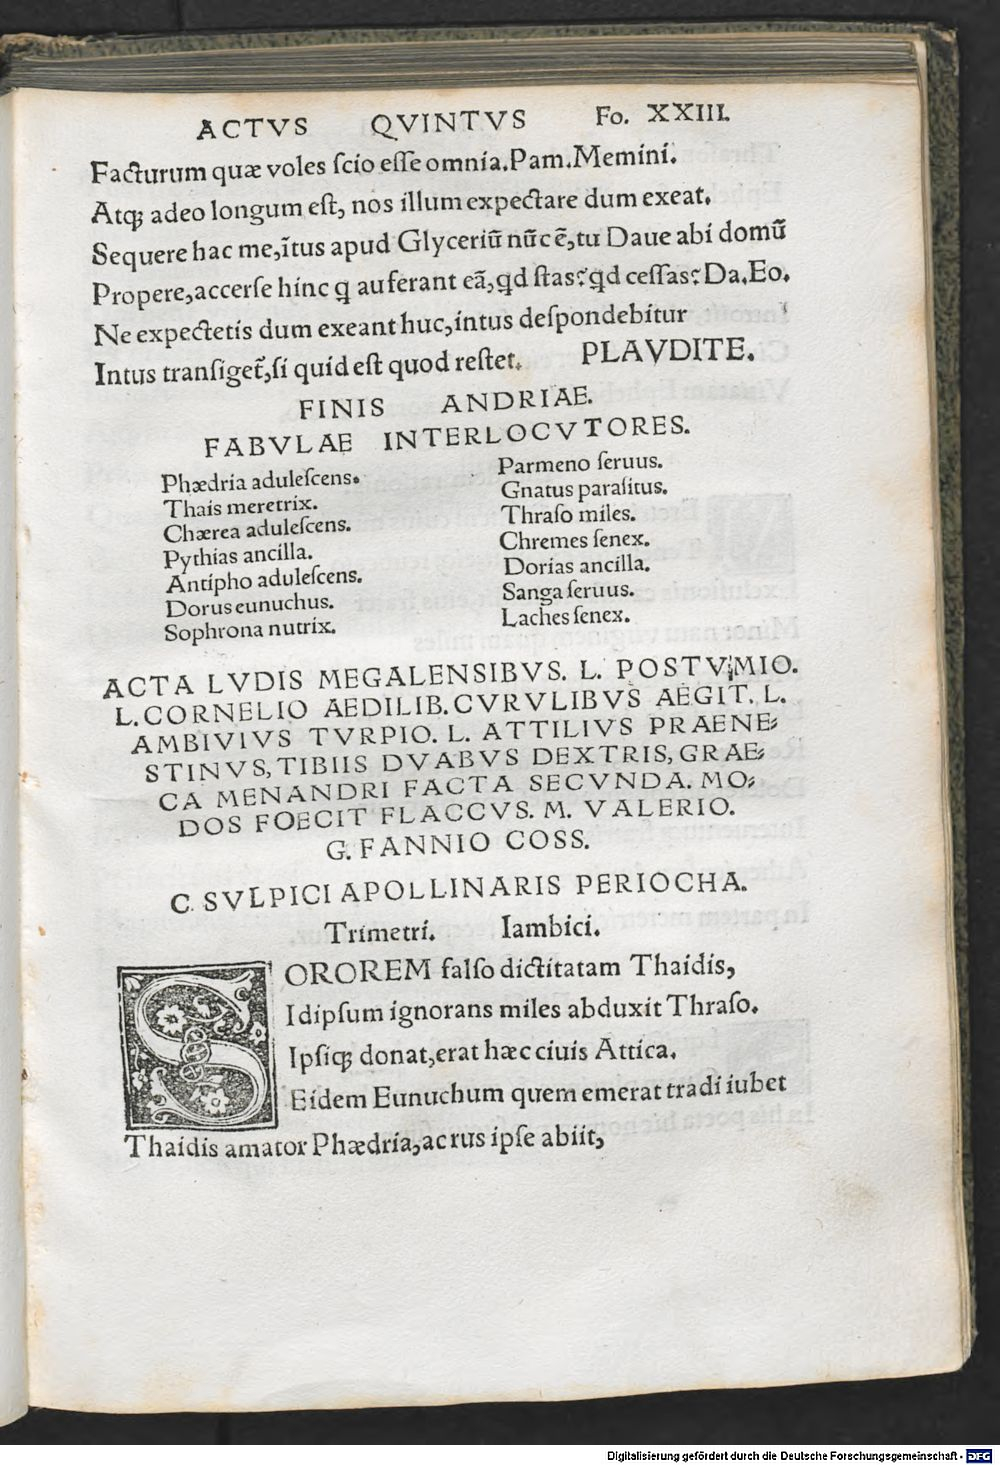 ACTVS QVINTVS Fo. XXIII.
Facturum quæ voles ſcio eſſe omnia. Pam. Memini.
Atqꝫ adeo longum eſt, nos illum expectare dum exeat.
Sequere hac me, ĩtus apud Glyceriũ nũc ẽ, tu Daue abi domũ
Propere, accerſe hinc q auferant eã, qd ſtas? qd ceſſas? Da. Eo.
Ne expectetis dum exeant huc, intus deſpondebitur
Intus tranſiget̃, ſi quid eſt quod reſtet. PLAVDITE.
FINIS ANDRIAE.
FABVLAE INTERLOCVTORES.
Phædria aduleſcens.
Thais meretrix.
Chærea aduleſcens.
Pythias ancilla.
Antipho aduleſcens.
Dorus eunuchus.
Sophrona nutrix.
Parmeno ſeruus.
Gnatus paraſitus.
Thraſo miles.
Chremes ſenex.
Dorias ancilla.
Sanga ſeruus.
Laches ſenex.
ACTA LVDIS MEGALENSIBVS. L. POSTVMIO.
L. CORNELIO AEDILIB. CVRVLIBVS AEGIT. L.
AMBIVIVS TVRPIO. L. ATTILIVS PRAENE⸗
STINVS, TIBIIS DVABVS DEXTRIS, GRAE⸗
CA MENANDRI FACTA SECVNDA. MO⸗
DOS FOECIT FLACCVS. M. VALERIO.
G. FANNIO COSS.
C. SVLPICI APOLLINARIS PERIOCHA.
Trimetri. Iambici.
SOROREM falſo dictitatam Thaidis,
Idipſum ignorans miles abduxit Thraſo.
Ipſiqꝫ donat, erat hæc ciuis Attica.
Eidem Eunuchum quem emerat tradi iubet
Thaidis amator Phædria, ac rus ipſe abiit,
Digitalisierung gefördert durch die Deutsche Forschungsgemeinschaft - DFG